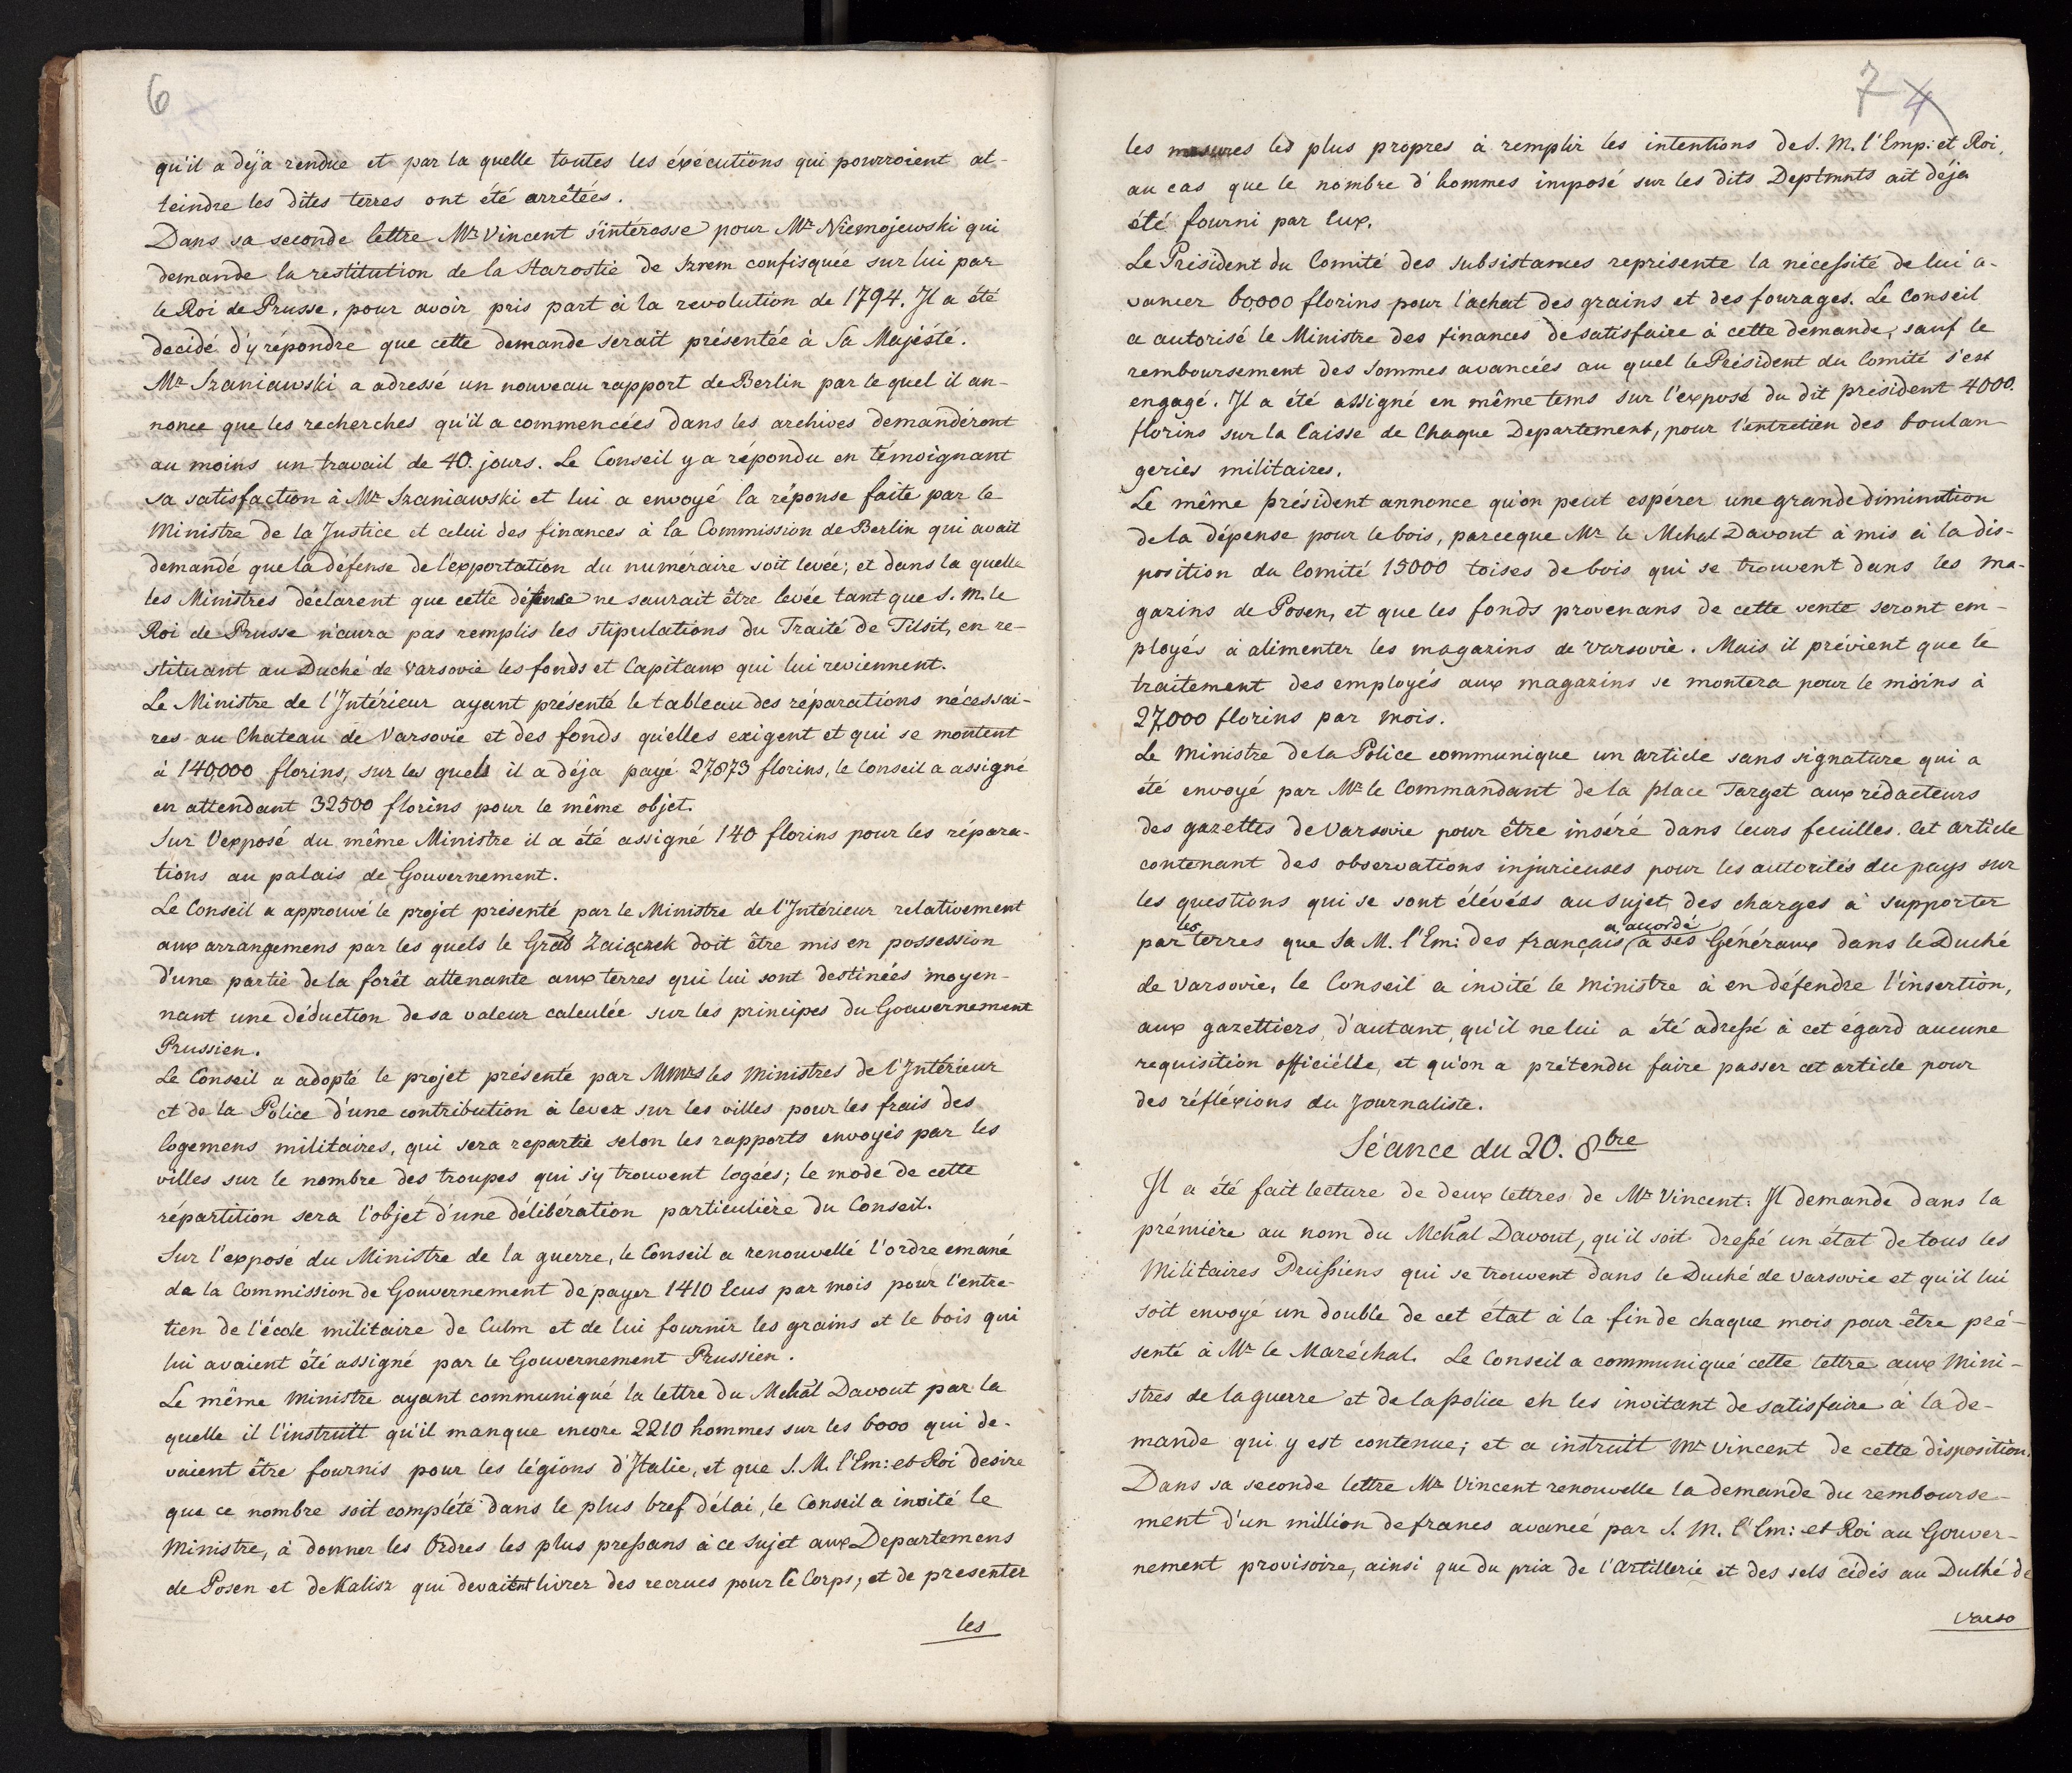 6
qu'il a déja rendue et par la quelle toutes les éxécutions qui pourroient at-
teindre les dites terres ont été arrêtées.
Dans sa seconde lettre Mr Vincent s'intéresse pour Mr Niemojewski qui
demande la restitution de la Starostie de Szrem confisquée sur lui par
le Roi de Prusse, pour avoir pris part à la revolution de 1794. Il a été
decidé d'y répondre que cette demande serait présentée à Sa Majésté.
Mr Szaniawski a adressé un nouveau rapport de Berlin par le quel il an-
nonce que les recherches qu'il a commencées dans les archives demandéront
au moins un travail de 40. jours. Le Conseil y a répondu en témoignant
sa satisfaction à Mr Szaniawski et lui a envoyé la réponse faite par le
Ministre de la Justice et celui des finances à la Commission de Berlin qui avait
demandé que la défense de l'exportation du numéraire soit levée; et dans la quelle
les Ministres déclarent que cette défense ne saurait être levée tant que S. M. le
Roi de Prusse n'aura pas remplis les stipulations du Traité de Tilsit, en re-
stituant au Duché de Varsovie les fonds et Capitaux qui lui reviennent.
Le Ministre de l'Intérieur ayant présenté le tableau des réparations nécessai-
res au Chateau de Varsovie et des fonds qu'elles exigent et qui se montent
à 140,000 florins, sur les quels il a déja payé 27,873 florins, le Conseil a assigné
en attendant 32500 florins pour le même objet.
Sur l'exposé du même Ministre il a été assigné 140 florins pour les répara-
tions au palais de Gouvernement.
Le Conseil a approuvé le projet présenté par le Ministre de l'Intérieur relativement
aux arrangemens par les quels le Gral Zaiączek doit être mis en possession
d'une partie de la forêt attenante aux terres qui lui sont destinées moyen-
nant une déduction de sa valeur calculée sur les principes du Gouvernement
Prussien.
Le Conseil a adopté le projet présenté par Mmrs les Ministres de l'Intérieur
et de la Police d'une contribution à lever sur les villes pour les frais des
logemens militaires, qui sera repartie selon les rapports envoyés par les
villes sur le nombre des troupes qui s'y trouvent logées; le mode de cette
répartition sera l'objet d'une délibération particulière du Conseil.
Sur l'exposé du Ministre de la guerre, le Conseil a renouvellé l'ordre emané
de la Commission de Gouvernement de payer 1410 Ecus par mois pour l'entre-
tien de l'école militaire de Culm et de lui fournir les grains et le bois qui
lui avaient été assigné par le Gouvernement Prussien.
Le même Ministre ayant communiqué la lettre du Mchal Davout par la
quelle il l'instruit qu'il manque encore 2210 hommes sur les 6000 qui de-
vaient être fournis pour les légions d'Italie, et que S. M. l'Em: et Roi desire
que ce nombre soit complété dans le plus bref délai, le Conseil a invité le
Ministre, à donner les Ordres les plus pressans à ce sujet aux Departemens
de Posen et de Kalisz qui devaient livrer des recrues pour le Corps; et de presenter
les
7 4
les mesures les plus propres à remplir les intentions de S. M. l'Emp: et Roi,
au cas que le nombre d'hommes imposé sur les dits Deptmnts ait déja
été fourni par Eux.
Le Président du Comité des subsistances représente la nécessité de lui a-
vancer 60,000 florins pour l'achat des grains et des fourages. Le Conseil
a autorisé le Ministre des finances de satisfaire à cette demande, sauf le
remboursement des sommes avancées au quel le Président du Comité s'est
engagé. Il a été assigné en même tems sur l'exposé du dit président 4000.
florins sur la Caisse de Chaque Departement, pour l'entretien des boulan-
geries militaires.
Le même président annonce qu'on peut espérer une grande diminution
de la dépense pour le bois, parceque Mr le Mchal Davout à mis à la dis-
position du Comité 15000 toises de bois qui se trouvent dans les ma-
gazins de Posen, et que les fonds provenans de cette vente seront em-
ployés à alimenter les magazins de Varsovie. Mais il prévient que le
traitement des employés aux magazins se montera pour le moins à
27,000 florins par mois.
Le Ministre de la Police communique un article sans signature qui a
été envoyé par Mr le Commandant de la place Target aux rédacteurs
des gazettes de Varsovie pour être inséré dans leurs feuilles. Cet article
contenant des observations injurieuses pour les autorités du pays sur
les questions qui se sont élévées au sujet des charges à supporter
par les terres que Sa M. l'Em: des français a accordé à ses Généraux dans le Duché
de Varsovie, le Conseil a invité le Ministre à en défendre l'insertion,
aux gazettiers, d'autant, qu'il ne lui a été adressé à cet égard aucune
requisition officiélle, et qu'on a prétendu faire passer cet article pour
des réfléxions du Journaliste.
Séance du 20. 8bre
Il a été fait lecture de deux lettres de Mr Vincent: Il demande dans la
prémière au nom du Mchal Davout, qu'il soit dressé un état de tous les
Militaires Prussiens qui se trouvent dans le Duché de Varsovie et qu'il lui
soit envoyé un double de cet état à la fin de chaque mois pour être pré-
senté à Mr le Maréchal. Le Conseil a communiqué cette lettre aux Mini-
stres de la guerre et de la police en les invitant de satisfaire à la de-
mande qui y est contenue; et a instruit Mr Vincent de cette disposition.
Dans sa seconde lettre Mr Vincent renouvelle la demande du rembourse-
ment d'un million de francs avancé par S. M. l'Em: et Roi au Gouver-
nement provisoire, ainsi que du prix de l'Artillerie et des sels cédés au Duché de
Varso